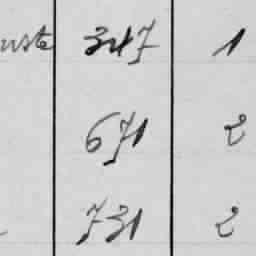 347 1
671 2
731 2